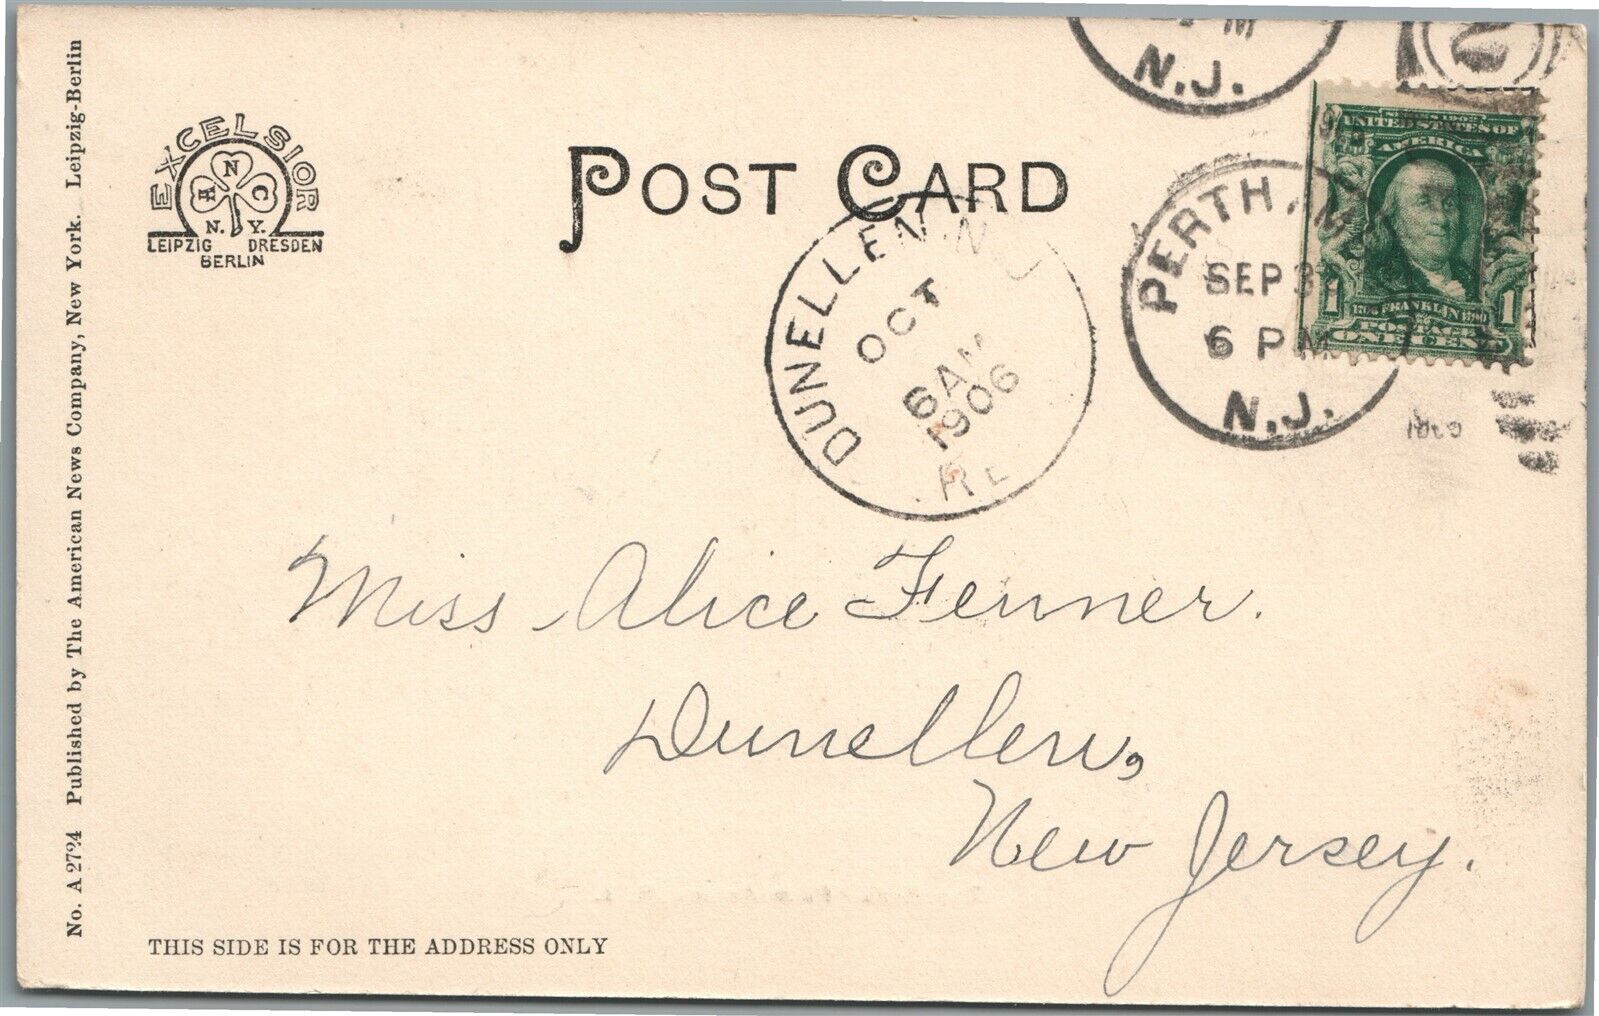 No. A 2724 Published by The American News Company, New York. Leipzig-Berlin
EXCELSIOR
A N C
N. Y.
LEIPZIG DRESDEN
BERLIN
POST CARD
M
N.J.
DUNELLEN, N.J.
OCT
6 AM
1906
PERTH AM
SEP
6 PM
N.J.
SERIES 1902
UNITED STATES OF
AMERICA
1 1706 FRANKLIN 1790 1
POSTAGE
ONE CENT
Miss Alice Fenner.
Dunellen,
New Jersey.
THIS SIDE IS FOR THE ADDRESS ONLY